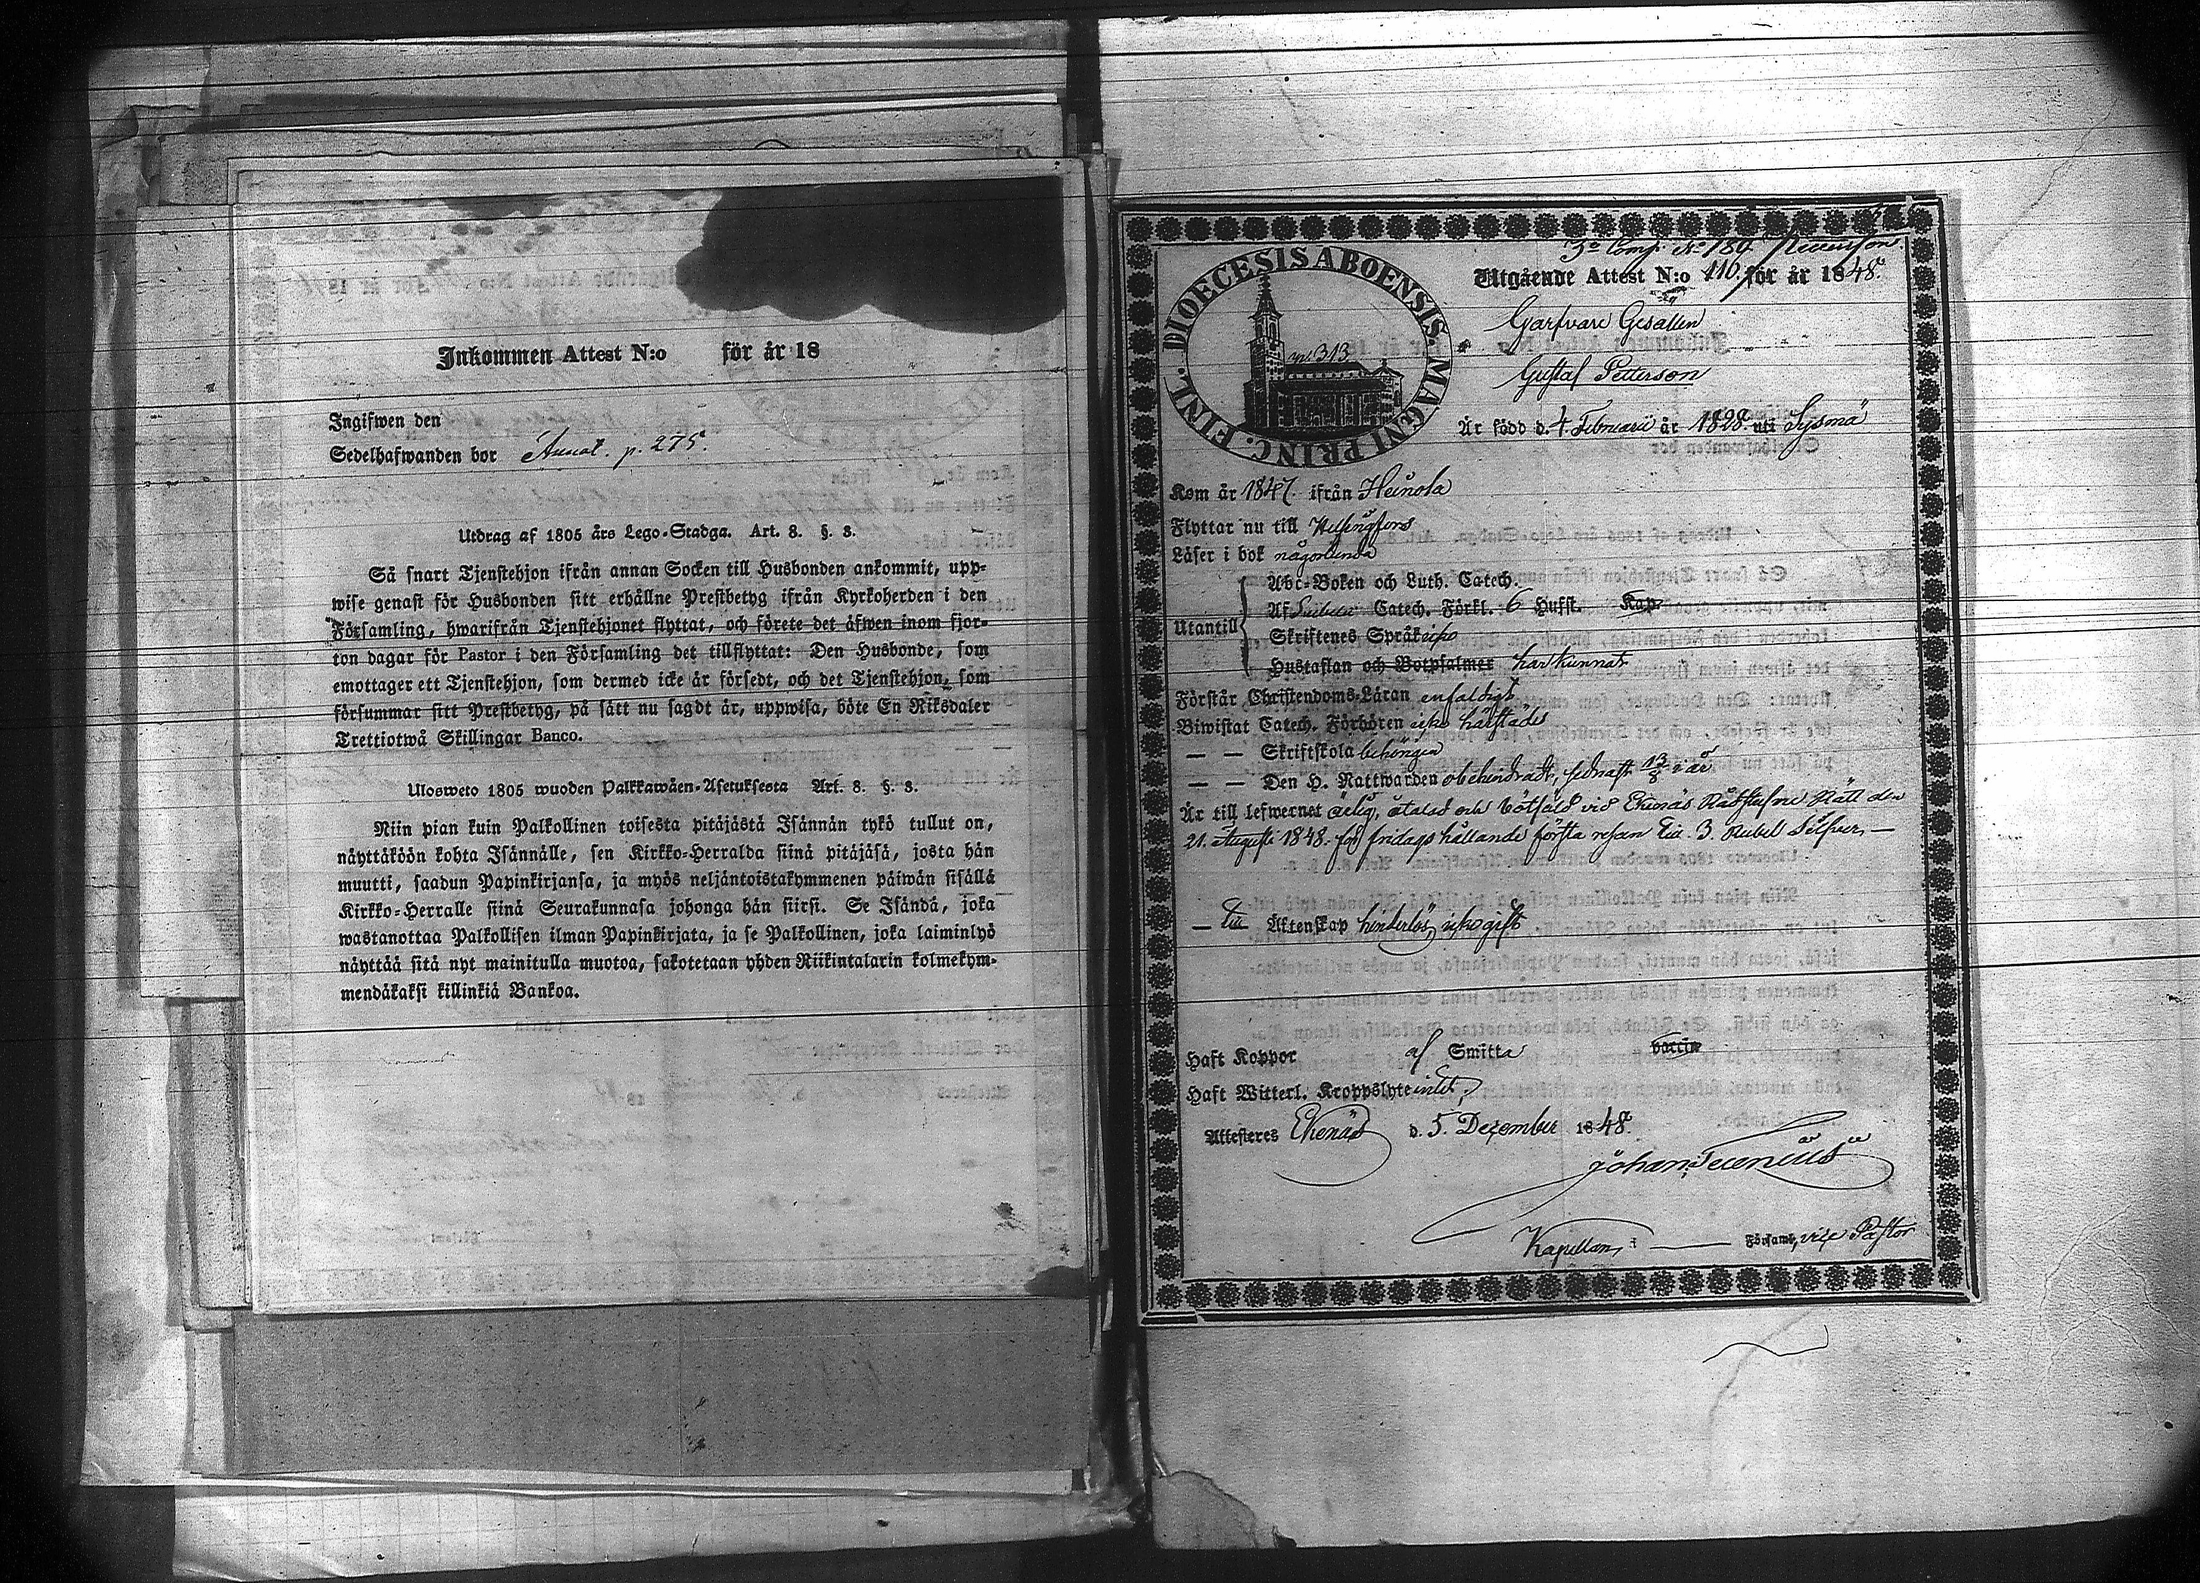 Inkommen Attest N:o för år 18
Ingifwen den
Sedelhafwanden bor Annot. p. 275.
Utdrag af 1805 års Lego-Stadga. Art. 8. §. 3.
Så snart Tjenstehjon ifrån annan Socken till Husbonden ankommit, upp-
wise genast för Husbonden sitt erhållne Prestbetyg ifrån Kyrkoherden i den
Församling, hwarifrån Tjenstehjonet flyttat, och förete det äfwen inom fjor-
ton dagar för Pastor i den Församling det tillflyttat: Den Husbonde, som
emottager ett Tjenstehjon, som dermed icke är försedt, och det Tjenstehjon, som
försummar sitt Prestbetyg, på sätt nu sagdt är, uppwisa, böte En Riksdaler
Trettiotwå Skillingar Banco.
Ulosweto 1805 wuoden Palkkawäen-Asetuksesta Art. 8. §. 3.
Niin pian kuin Palkollinen toisesta pitäjästä Isännän tykö tullut on,
näyttäköön kohta Isännälle, sen Kirkko-Herralda siinä pitäjäsä, josta hän
muutti, saadun Papinkirjansa, ja myös neljäntoistakymmenen päiwän sisällä
Kirkko-Herralle siinä Seurakunnasa johonga hän siirsi. Se Isändä, joka
wastanottaa Palkollisen ilman Papinkirjata, ja se Palkollinen, joka laiminlyö
näyttää sitä nyt mainitulla muotoa, sakotetaan yhden Riikintalarin kolmekym-
mendäkaksi killinkiä Bankoa.
3e Comp. No 184
DIOECESIS ABOENSIS. MAGNI PRINC. FINL.
p. 313
Utgående Attest N:o 110. för år 1848.
Garfvare Gesällen
Gustaf Petterson
Är född d. 4 Februarii år 1828 uti Sysmä
Kom år 1847. ifrån Heinola
Flyttar nu till Helsingfors
Läser i bok någorlunda
Utantill
Abc-Boken och Luth. Catech.
Af Catech. Förkl. 6 Hufst. Kap.
Skriftenes Språk icke
Hustaflan och Botpsalmer har kunnat
Förstår Christendoms-Läran enfaldigt
Biwistat Catech. Förhören icke härstädes
— — Skriftskola behörigen
— — Den H. Nattwarden obehindradt, sednast 13/8 i år
Är till lefwernet ärlig, åtalad och bötfäld vid Ekenäs Rådstufvu Rätt den
21. Augusti 1848. för fridagshållande första resan till 3. Rubel Silfver, —
— till Äktenskap hinderlös, icke gift
Haft Koppor af Smitta vaccin
Haft Witterl. Kroppslyte intet,
Attesteres Ekenäs d. 5. December 1848.
Johan
Kapellan, i — Församl, vice Pastor